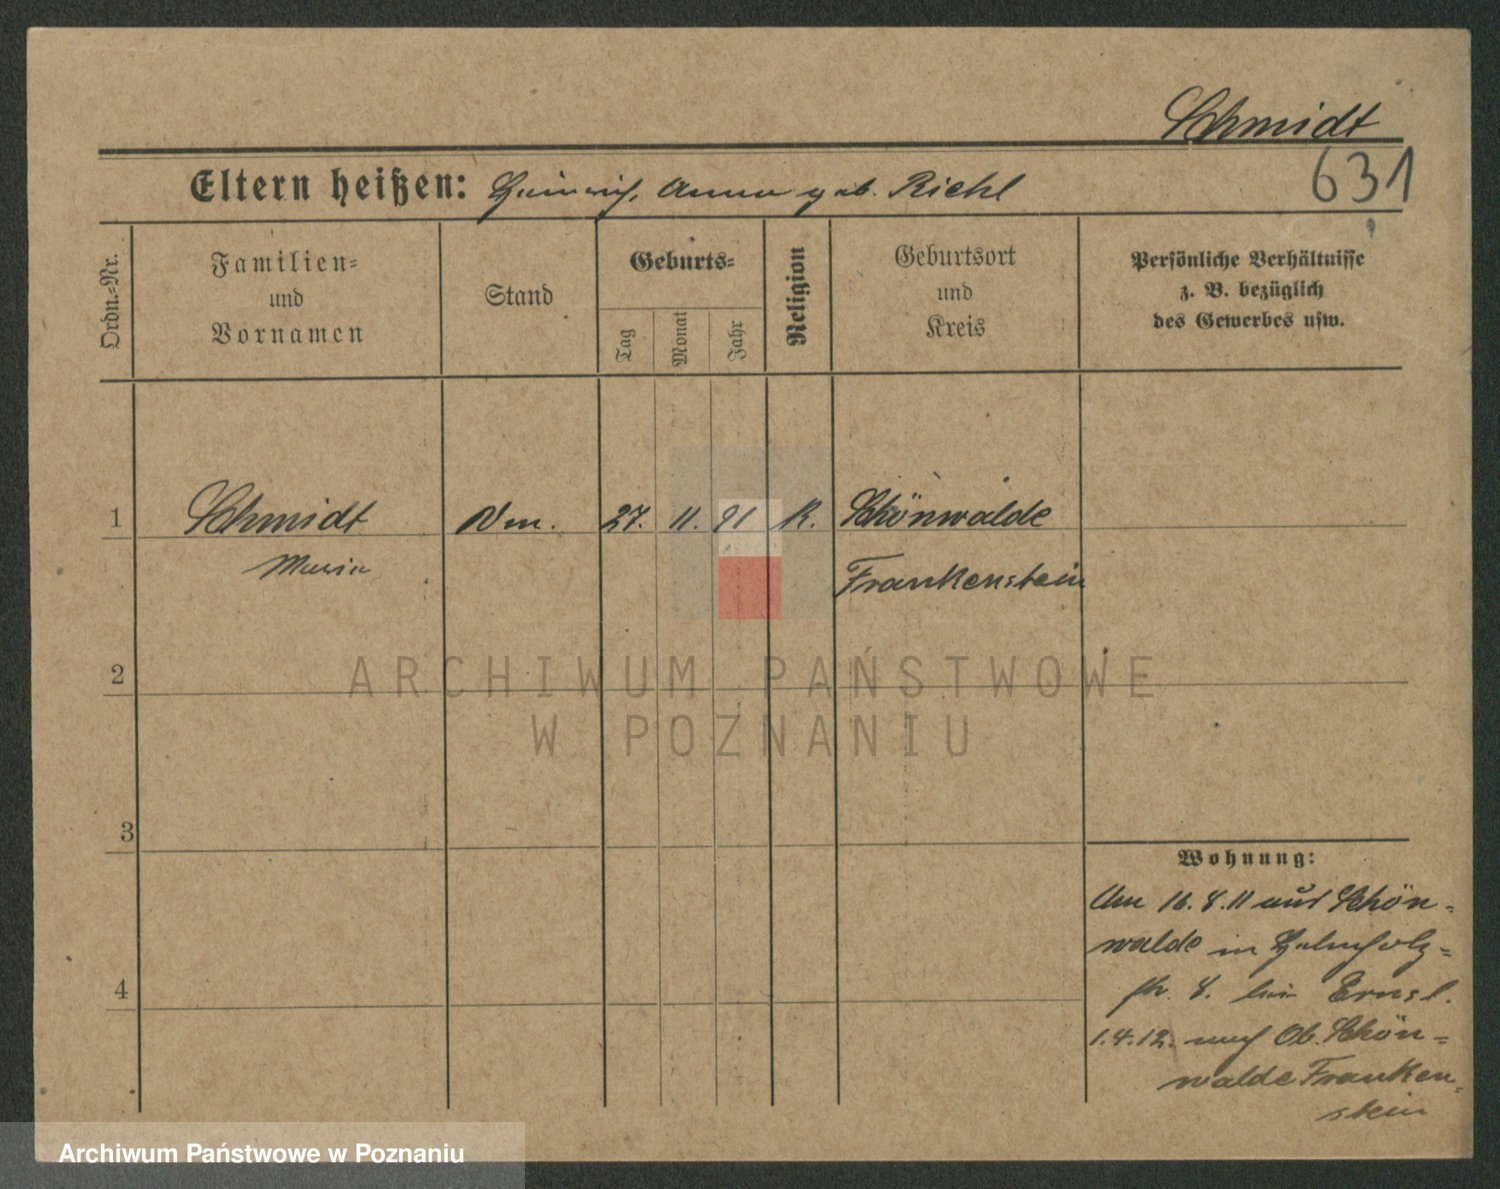 Schmidt
631
Eltern heißen: Heinrich, Anna geb. Riehl
Ordn.-Nr.
Familien-
und
Vornamen
Stand
Geburts-
Tag
Monat
Jahr
Religion
Geburtsort
und
Kreis
Persönliche Verhältnisse
z. B. bezüglich
des Gewerbes usw.
1 Schmidt 27. 11. 91 K. Schönwalde
Maria Frankenstein
2
3
4
Wohnung:
Am 16.8.11 aus Schön-
walde in Helmholtz-
str. 8. bei Ernst.
1.4.12. nach Ob. Schön-
walde Franken-
stein
ARCHIWUM PAŃSTWOWE
W POZNANIU
Archiwum Państwowe w Poznaniu